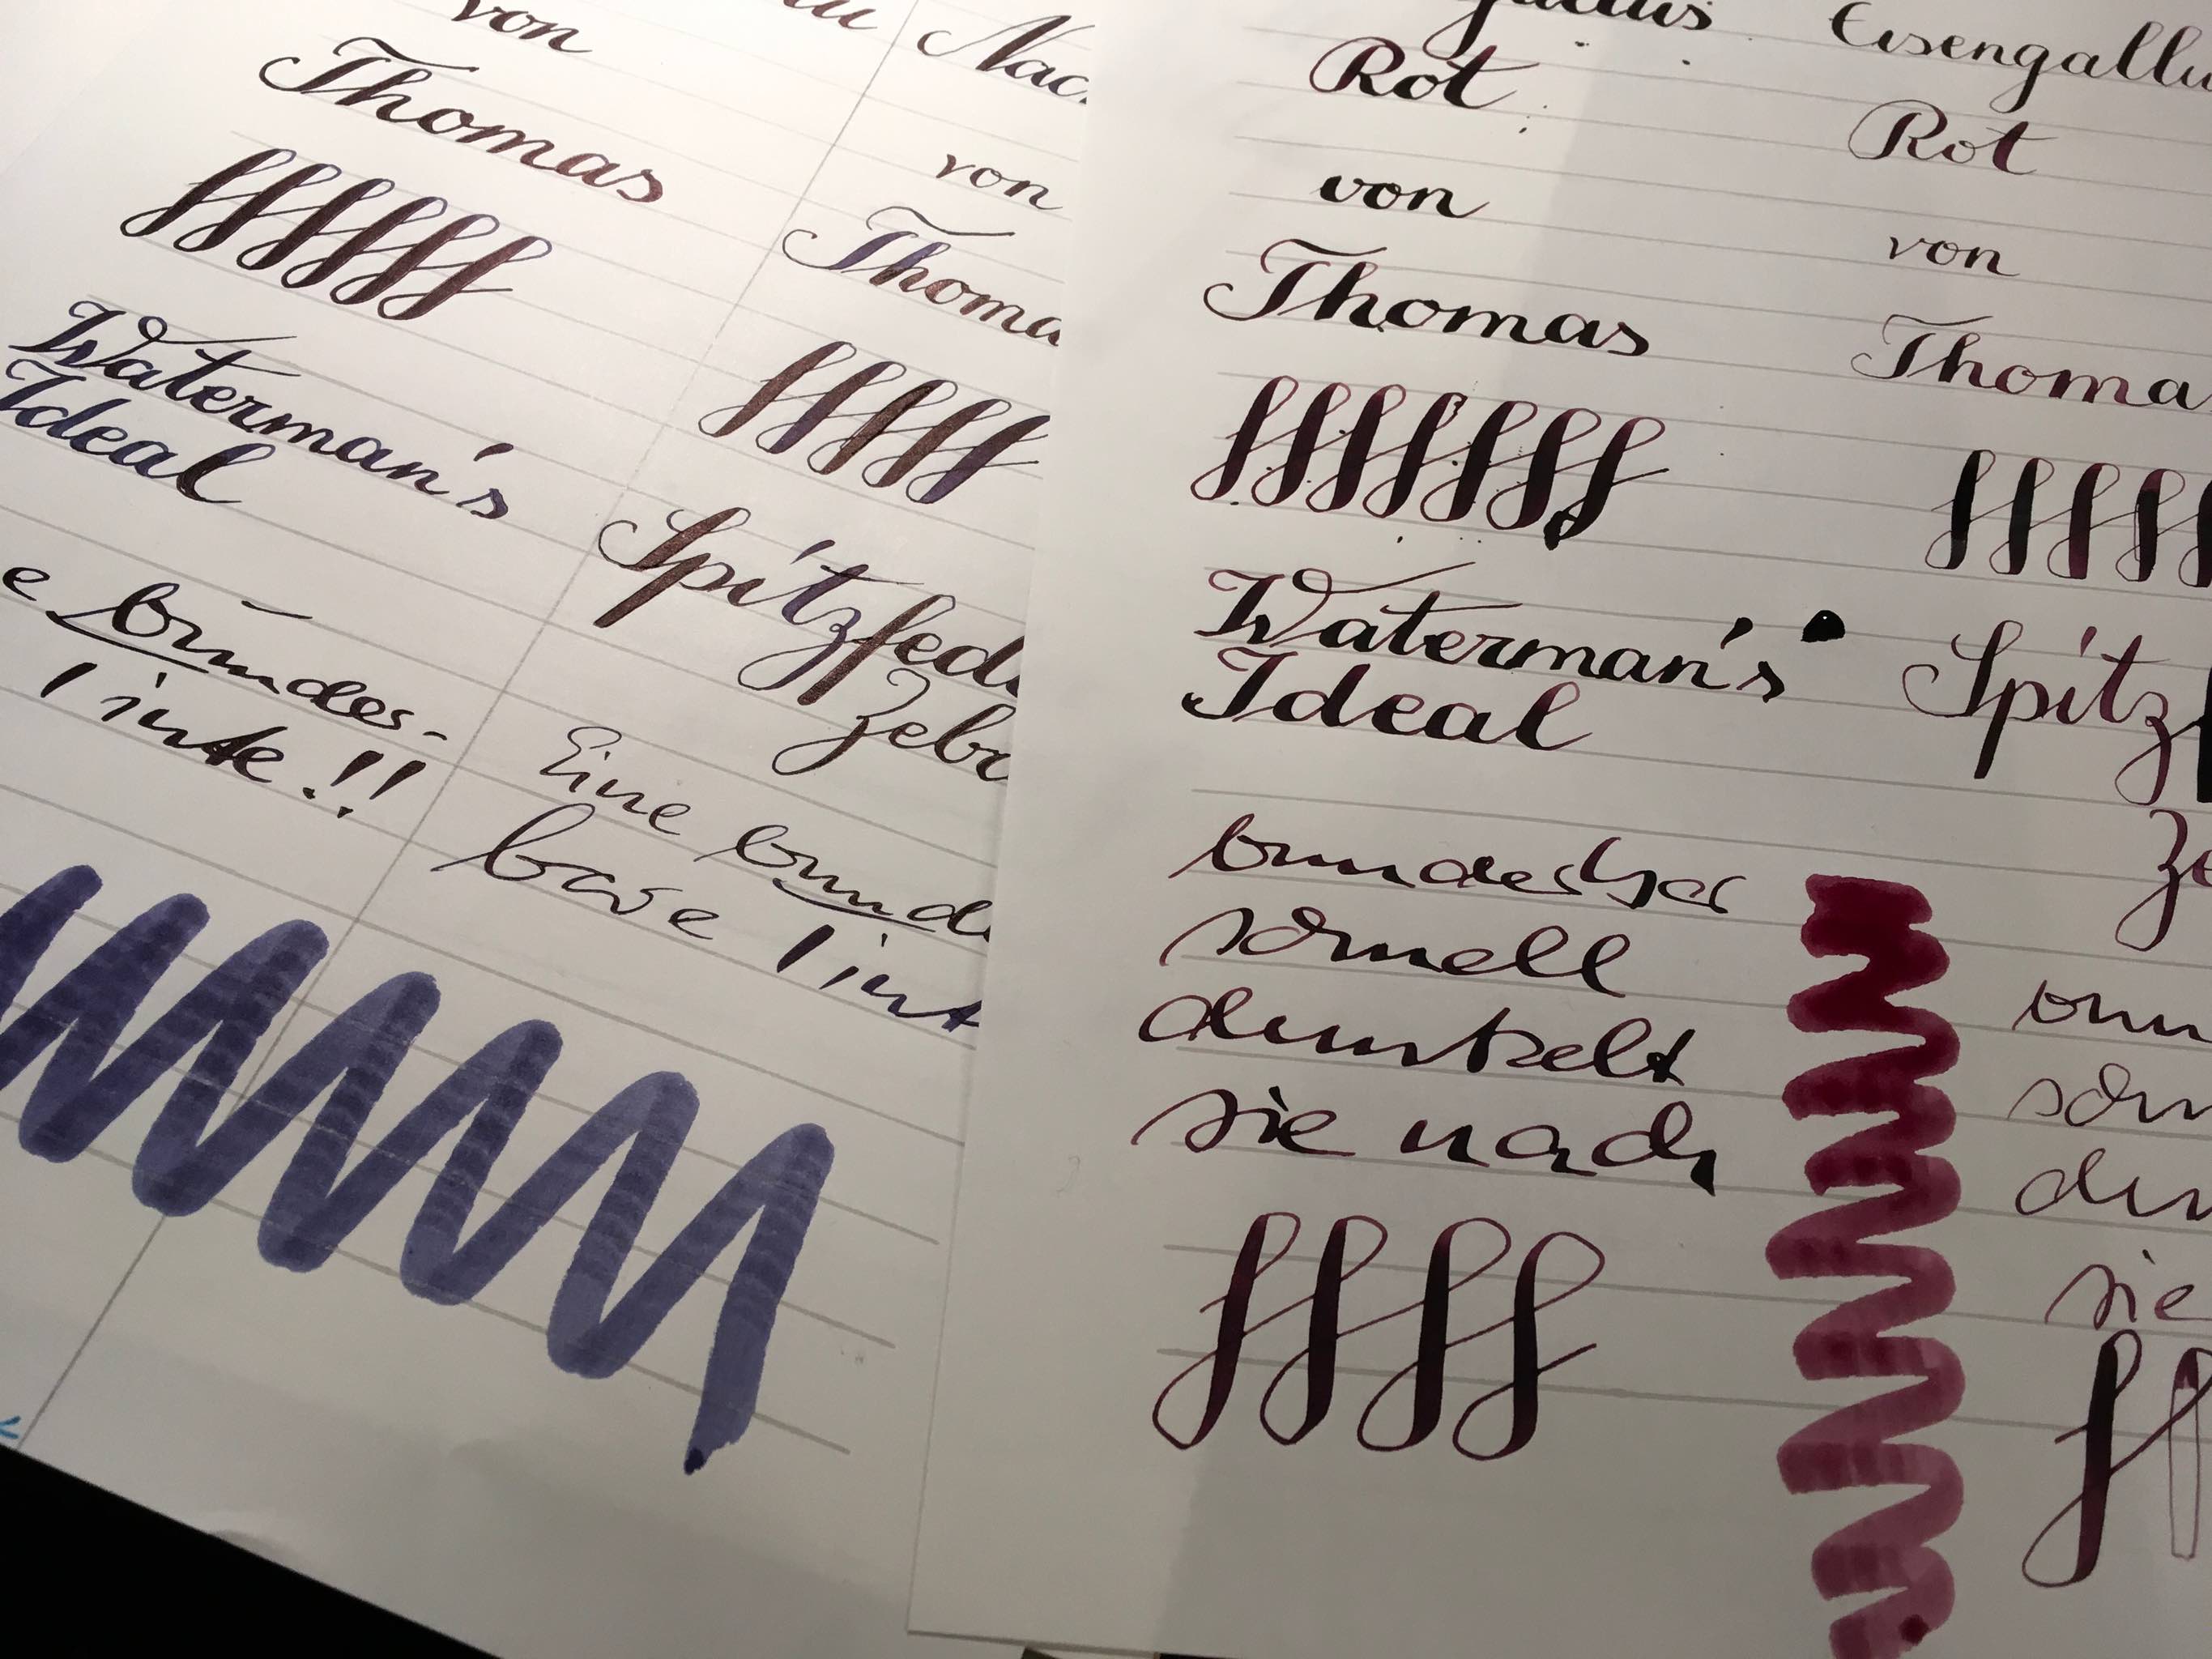 von
Thomas
ffffff
Waterman's
Ideal
e wunder-
Tinte!!
Nac
von
Thoma
fffff
Spitzfed
Zebr
Eine wund
bare Tint
gallus
Rot
von
Thomas
fffffff
Waterman's
Ideal
wunderbar
schnell
dunkelt
sie nach
ffff
Eisengallu
Rot
von
Thoma
fffff
Spitz
Ze
wun
sch
du
sie
ff